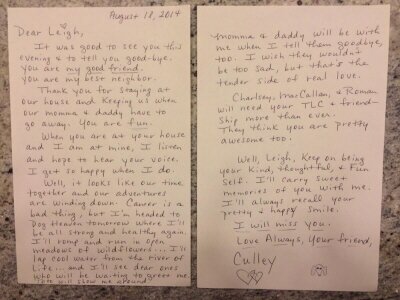 August 18, 2014
Dear Leigh,
It was good to see you this
evening & to tell you good-bye.
You are my good friend.
You are my best neighbor.
Thank you for staying at
our house and keeping us when
our momma & daddy have to
go away. You are fun.
When you are at your house
and I am at mine, I listen
and hope to hear your voice.
I get so happy when I do.
Well, it looks like our time
together and our adventures
are winding down. Cancer is a
bad thing, but I'm headed to
Dog Heaven tomorrow where I'll
be all strong and healthy again.
I'll romp and run in open
meadows of wildflowers... I'll
lap cool water from the river of
life... and I'll see dear ones
who will be waiting to greet me
will show me around.
momma & daddy will be with
me when I tell them goodbye,
too. I wish they wouldn't
be too sad, but that's the
tender side of real love.
Charlsey, MacCallan, & Roman
will need your TLC & friend-
ship more than ever.
They think you are pretty
awesome too.
Well, Leigh, keep on being
your kind, thoughtful & fun
self. I'll carry sweet
memories of you with me.
I'll always recall your
pretty & happy smile.
I will miss you.
Love Always, your friend,
Culley